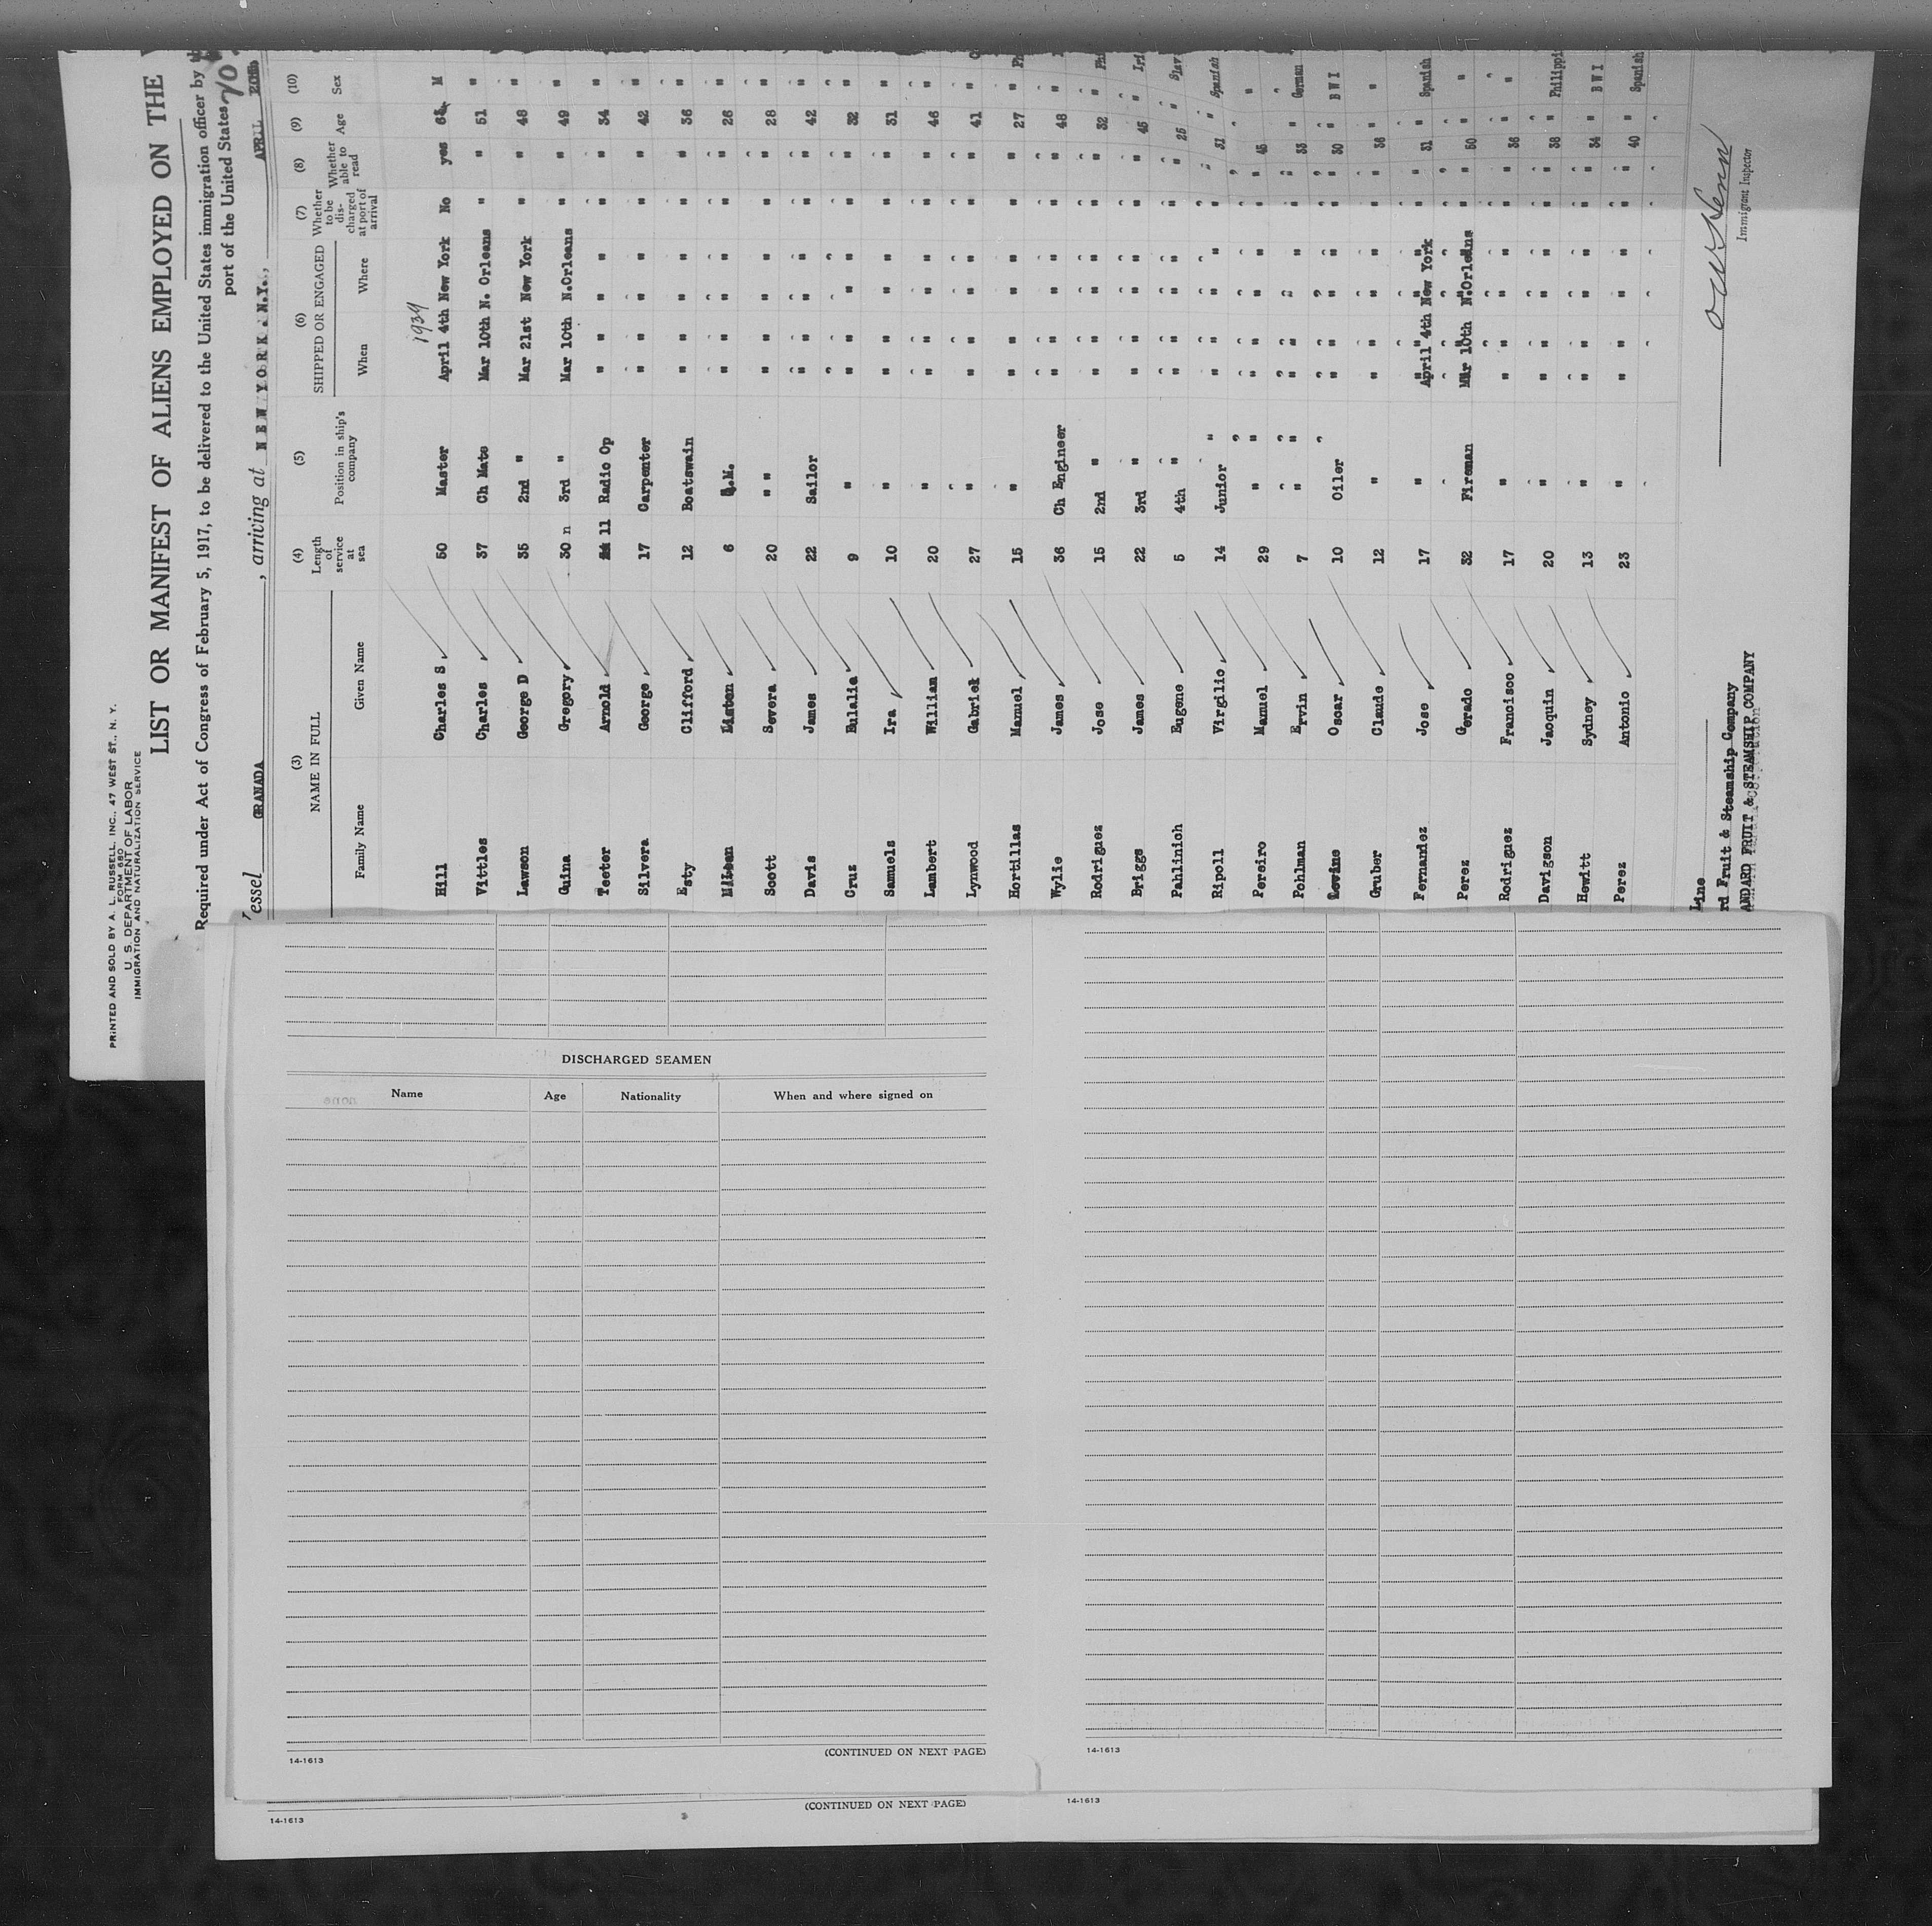 PRINTED AND SOLD BY A. L. RUSSELL, INC., 47 WEST ST., N. Y.
FORM 680
U. S. DEPARTMENT OF LABOR
IMMIGRATION AND NATURALIZATION SERVICE
LIST OR MANIFEST OF ALIENS EMPLOYED ON THE
Required under Act of Congress of February 5, 1917, to be delivered to the United States immigration officer by
port of the United States
essel GRANADA, arriving at NEW YORK. N.Y., APRIL
(3) (4) (5) (6) (7) (8) (9) (10)
NAME IN FULL Length of service at sea Position in ship's company SHIPPED OR ENGAGED Whether to be discharged at port of arrival Whether able to read Age Sex
Family Name Given Name When Where
1939
Hill Charles S 50 Master April 4th New York No yes M
Vittles Charles 37 Ch Mate Mar 10th N. Orleans " " 51 "
Lawson George D 35 2nd " Mar 21st New York " " 48 "
Guina Gregory 30 n 3rd " Mar 10th N.Orleans " " 49 "
Teeter Arnold 11 Radio Op " " " " " " 34 "
Silvera George 17 Carpenter " " " " " " 42 "
Esty Clifford 12 Boatswain " " " " " " 36 "
6 Q.M. " " " " " " 26 "
Scott Severa 20 " " " " " " " " 28 "
Davis James 22 Sailor " " " " " " 42 "
Cruz Eulalia 9 " " " " " " " 32 "
Samuels Ira 10 " " " " " " " 31 "
Lambert Willian 20 " " " " " " " 46 "
Lynwood Gabriek 27 " " " " " " " 41 "
Hortillas Manuel 15 " " " " " " " 27 " Ph
Wylie James 36 Ch Engineer " " " " " " 48 "
Rodriguez Jose 15 2nd " " " " " " " 32 " Ph
Briggs James 22 3rd " " " " " " " 45 " Iri
Pahlinich Eugene 5 4th " " " " " " " 25 " Slav
Ripoll Virgilio 14 Junior " " " " " " " 31 " Spanish
Pereiro Manuel 29 " " " " " " " " 45 "
Pohlman Ervin 7 " " " " " " " " 33 " German
Levine Oscar 10 Oiler " " " " " " 30 " B W I
Gruber Claude 12 " " " " " " " 36 " "
Fernandez Jose 17 " April 4th New York " " 31 " Spanish
Perez Gerado 32 Fireman Mar 10th N.Orleans " " 50 " "
Rodriguez Francisco 17 " " " " " " " 36 " "
Davigson Jacquin 20 " " " " " " " 38 " Philippi
Hewitt Sydney 13 " " " " " " " 34 " B W I
Perez Antonio 23 " " " " " " " 40 " Spanish
Line
rd Fruit & Steamship Company
ANDARD FRUIT & STEAMSHIP COMPANY
Immigrant Inspector
DISCHARGED SEAMEN
Name Age Nationality When and where signed on
none
14-1613 (CONTINUED ON NEXT PAGE) 14-1613
14-1613 (CONTINUED ON NEXT PAGE) 14-1613